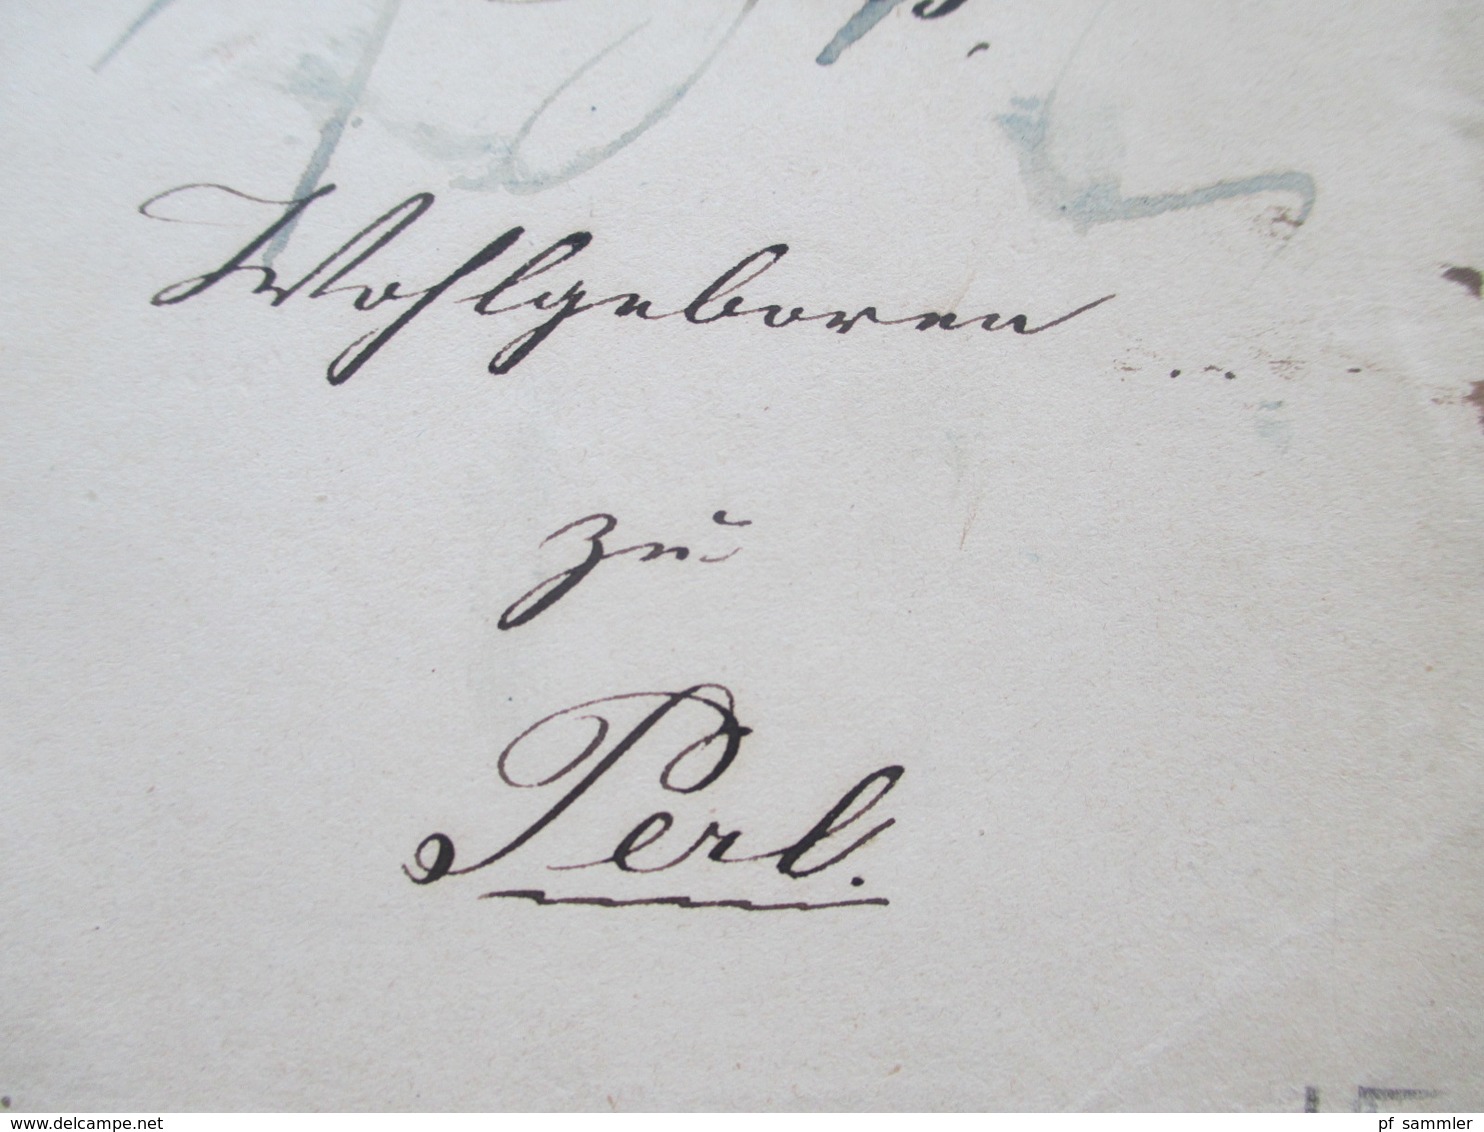 Wohlgeboren
zu
Perl.
www.delcampe.net
pf_sammler